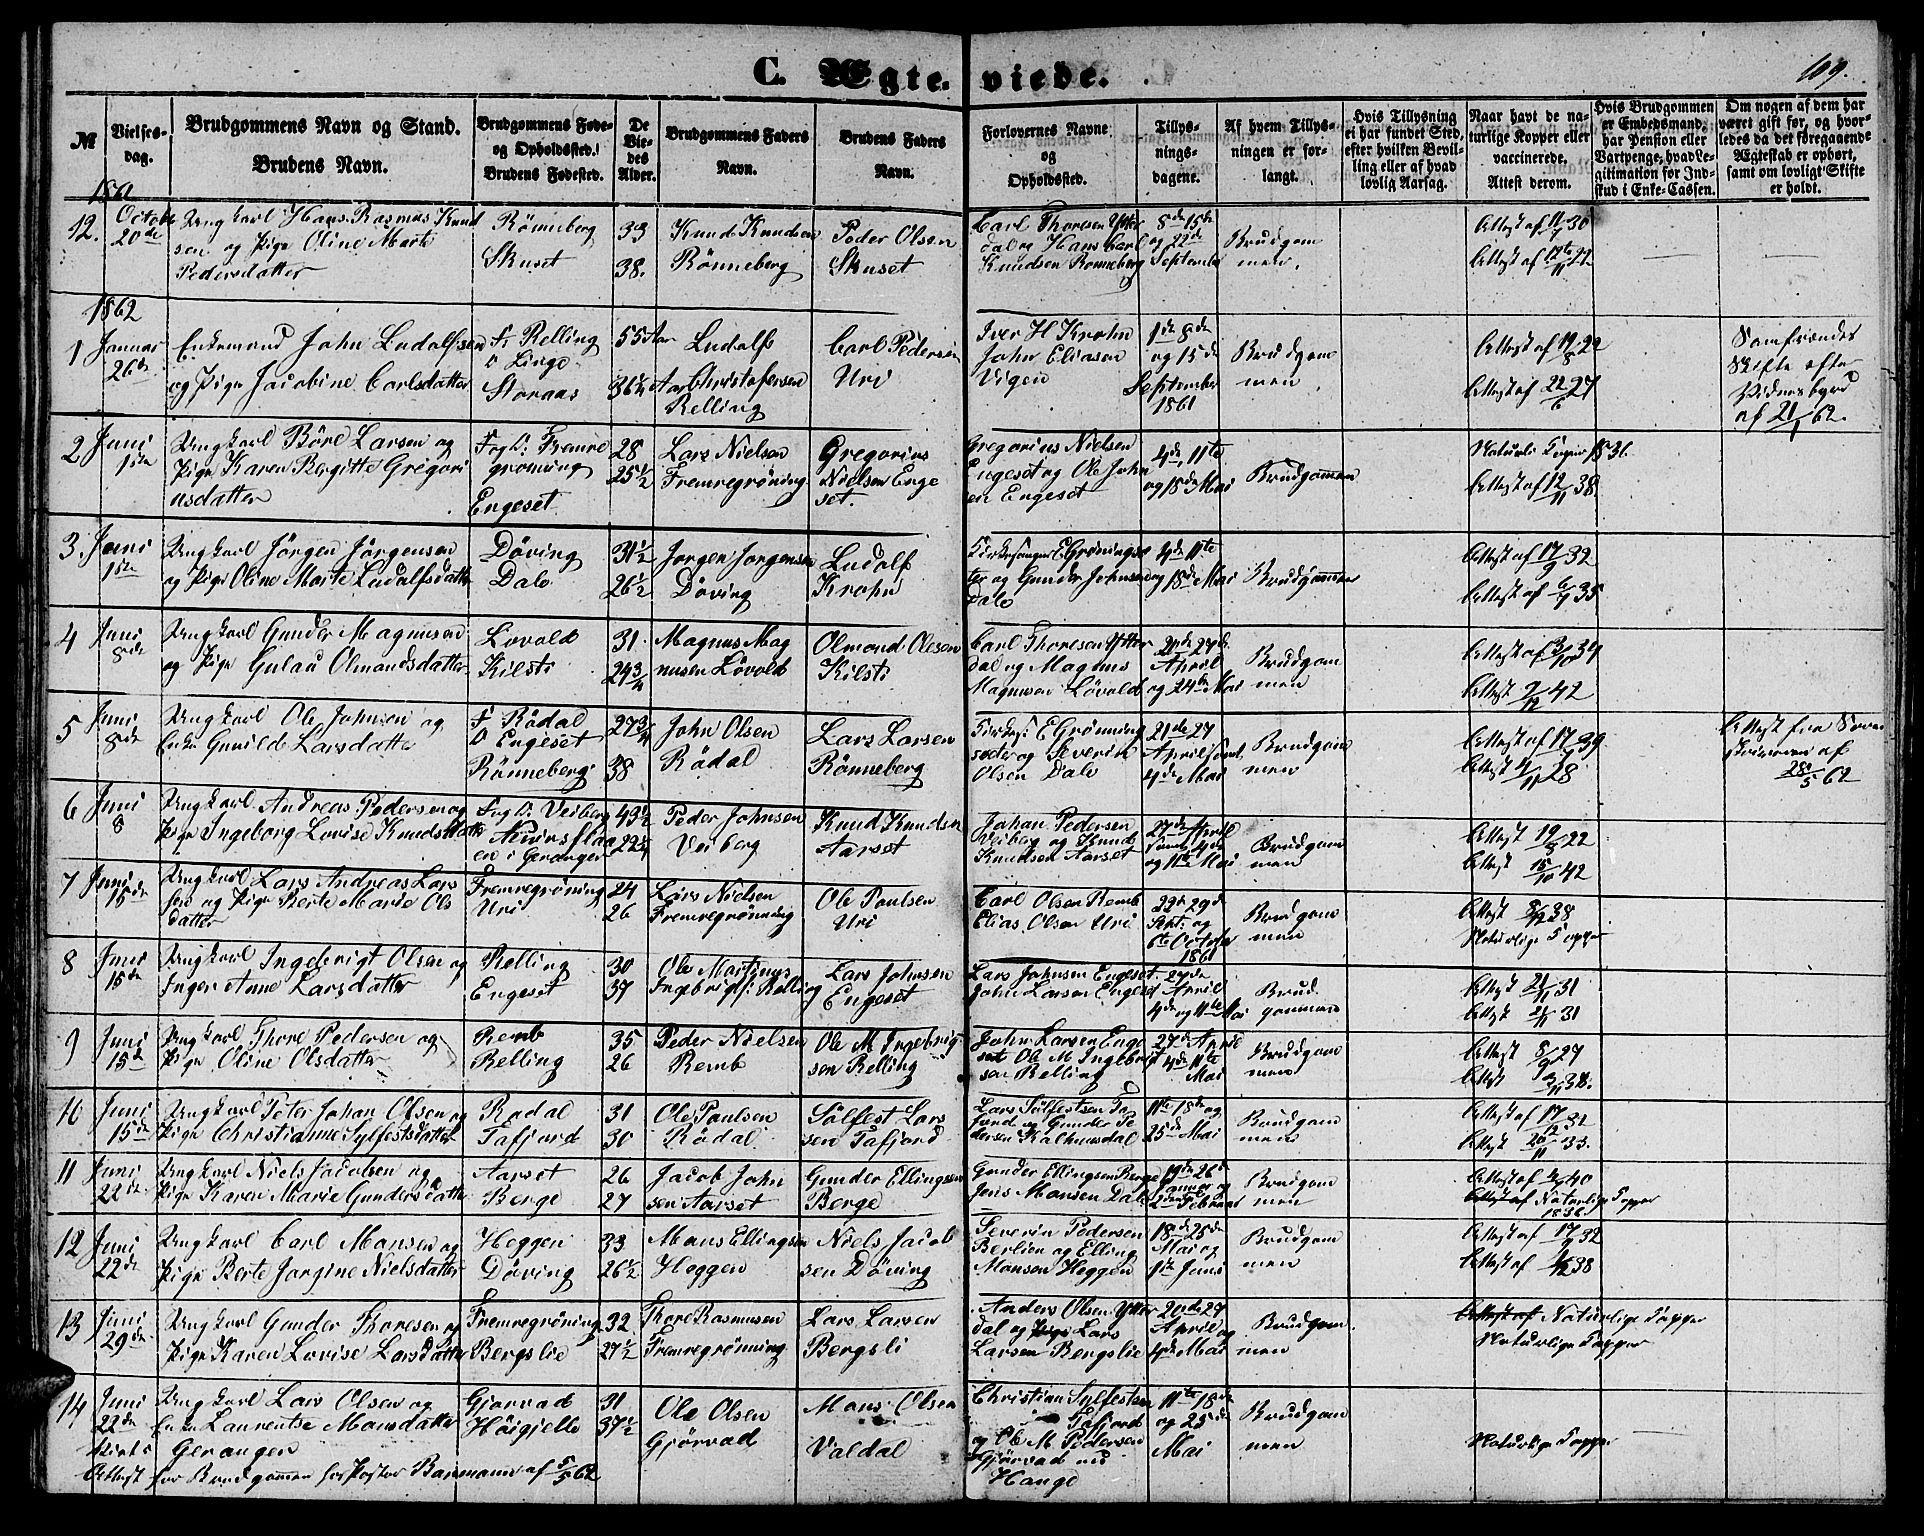 109.
C. Ægteviede.
№
Vielses-
dag.
Brudgommens Navn og Stand.
Brudens Navn.
Brudgommens Føde-
og Opholdssted.
Brudens Fødested.
De
Vie-
des
Alder.
Brudgommens Faders
Navn.
Brudens Faders
Navn.
Forlovernes Navne
og
Opholdssted.
Tillys-
nings-
dagene.
Af hvem Tillys-
ningen er for-
langt.
Hvis Tillysning
ei har fundet Sted,
efter hvilken Bevil-
ling eller af hvad
lovlig Aarsag.
Naar havt de na-
turlige Kopper eller
vaccinerede.
Attest derom.
Hvis Brudgommen
er Embedsmand,
har Pension eller
Vartpenge, hvad Le-
gitimation for Ind-
skud i Enke-Cassen.
Om nogen af dem har
været gift før, og hvor-
ledes da det foregaaende
Ægteskab er ophørt,
samt om lovligt Skifte
er holdt.
1861
12. Octob 20de Ungkarl Hans Rasmus Knud
sen og Pige Oline Marte
Pedersdatter
Rönneberg
Skuset
33
38.
Knud Knudsen
Rönneberg
Peder Olsen
Skuset
Carl Thoresen Ytter
dal og Hans Carl
Knudsen Rönneberg
8de 15de
og 22de
September
Brudgom
men.
Attest af 30
Attest af 22
1862
1 Januar 26de Enkemand John Ludolfsen
og Pige Jacobine Carlsdatter
F. Relling
O Linge
Storaas
55 Aar
36½ Aar
Ludolf
Christofersen
Relling
Carl Pedersen
Uri
Iver H Krohn
John Eliasen
Vigen
1de 8de
og 15de
September
1861
Brudgom
men.
Attest af 19/8 22
Attest af 22/6 27
Samfrænder
Skifte efter
Vidnesbyrd
af 21/1 62.
2 Juni 1ste Ungkarl Böre Larsen og
Pige Karen Bergitte Gregori
usdatter
F og O: Fremre
gröning
Engeset
28
25½
Lars Nielsen
Fremregröning
Gregorius
Nielsen Enge
set.
Gregorius Nielsen
Engeset og Ole John
en Engeset
4de, 11te
og 18de Mai
Brudgommen
Naturli Kopper 1836.
Attest af 12/11 38
3 Juni 1ste Ungkarl Jörgen Jörgensen
og Pige Oline Marte Ludolfsdatter
Döving
Dale
31½
26½
Jorgen Jorgensen
Döving
Ludolf
Krohn
Kirkesanger E Gröningsæ
ter og Gunder Johnsen
Dale
4de 11te
og 18de Mai
Brudgommen
Attest af 17/9 32
Attest af 35
4 Juni 8de Ungkarl Gunder Magnusen
og Pige Gulau Olmandsdatter
Lövold
Kilsti
31.
24¾
Magnus Mag
nusen Lövold
Olmand Olsen
Kilsti
Carl Thoresen Ytter
dal og Magnus
Magnusen Lövold
April
og 24de Mai
Brudgom
men
Attest af 39
Attest 42
5 Juni 8de Ungkarl Ole Johnsen og
Enke Gunild Larsdatter
F Rödal
O Engeset
Rönneberg
27¾
38
John Olsen
Rödal
Lars Larsen
Rönneberg
Kirkes: E Grönning
sæter og Severin
Olsen Dale
21de 27
April samt
4de Mai
Brudgom
men
Attest af 17/9 39
Attest 28
Attest fra Soren
skriveren af
28/5 62
6 Juni 8 Ungkarl Andreas Pedersen og
Pige Ingeborg Lovise Knudsdatter
F og O: Veiberg
en i Geranger
43½
22¾
Peder Johnsen
Veiberg
Knud Knudsen
Aarset
Johan Pedersen
Veiberg og Knud
Knudsen Aarset
27de April
samt 4de
og 11te Mai
Brudgom
men
Attest 19/8 22
Attest 15/10 42
7 Juni 15de Ungkarl Lars Andreas Lars
sen og Pige Berte Marie Ols
datter
Fremregröning
Uri
24
26
Lars Nielsen
Fremregrönning
Ole Paulsen
Uri
Carl Olsen Remb
Elias Olsen Uri
22de 29de
Sept: og
6te October
1861
Brudgom
men
Attest 38
Naturlige Kopper
8 Juni 15de Ungkarl Ingebrigt Olsen og
Inger Anne Larsdatter
Relling
Engeset
30
37
Ole Martinus
Ingebrigts: Relling
Lars Johnsen
Engeset
Lars Johnsen Engeset
John Larsen Engeset
27de
April
4de og 11te Mai
Brud
gommen
Attest 21/11 31
Attest 21/11 31
9 Juni 15de Ungkarl Thore Pedersen og
Pige Oline Olsdatter
Remb
Relling
35
26
Peder Nielsen
Remb
Ole M Ingebrig
sen Relling
John Larsen Enge
set Ole M Ingebrigt
sen Relling
27de April
4de 11te
Mai
Brudgom
men
Attest 8/9 27
Attest 38.
10 Juni 15de Ungkarl Peter Johan Olsen og
Pige Christianne Sylfestsdatter
Rødal
Tafjord
31
30
Ole Paulsen
Rødal
Sölfest Lars
sen Tafjord
Lars Sölfestsen Ta
fjord og Gunder Pe
dersen Kalhusdal
11te 18de og
25de Mai
Brudgom
men
Attest af 17/9 32
Attest 33.
11 Juni 22de Ungkarl Niels Jacobsen og
Pige Karen Marie Gundersdatter
Aarset
Berge
26
27
Jacob John
sen Aarset
Gunder Ellingsen
Berge
Gunder Ellingsen Berge
Jens Monsen Dale
19de 26de
Januar og
2den Februar
Brudgom
men
Attest af 40
Attest af Naturlige Kopper
1838
12 Juni 22de Ungkarl Carl Monsen og
Pige Berte Jorgine Nielsdatter
Heggen
Döving
33
26½
Mons Ellingsen
Heggen
Niels Jacob
sen Döving
Severin Pedersen
Berlien og Elling
Monsen Heggen
18de 25de
Mai og
1ste Juni
Brudgom
men
Attest af 17/9 32
Attest af 38
13 Juni 29de Ungkarl Gunder Thoresen og
Pige Karen Lovise Larsdatter
Fremregröning
Bergslie
32
27½
Thore Rasmusen
Fremregrönning
Lars Larsen
Bergsli
Anders Olsen Ytter
dal og Lars
Larsen Bergslie
20de 27
April og
4de Mai
Brudgom
men
Attest af Naturlige Kopper
Naturlige Kopper
14 Juni 22de Ungkarl Lars Olsen og
Enke Laurentse Monsdatter
Geranger
Gjørvad
Höigjelle
31
37½
Ole Olsen
Gjörvad
Mons Olsen
Valdal
Christian Sylfestsen
Tafjord
og Ole M Pedersen
Gjörvad ved
Hauge
11te 18de
og 25de
Mai
Brudgom
men
Naturlige Kopper
Attest for Brudgommen fra Pastor Barmann af 5/5 62